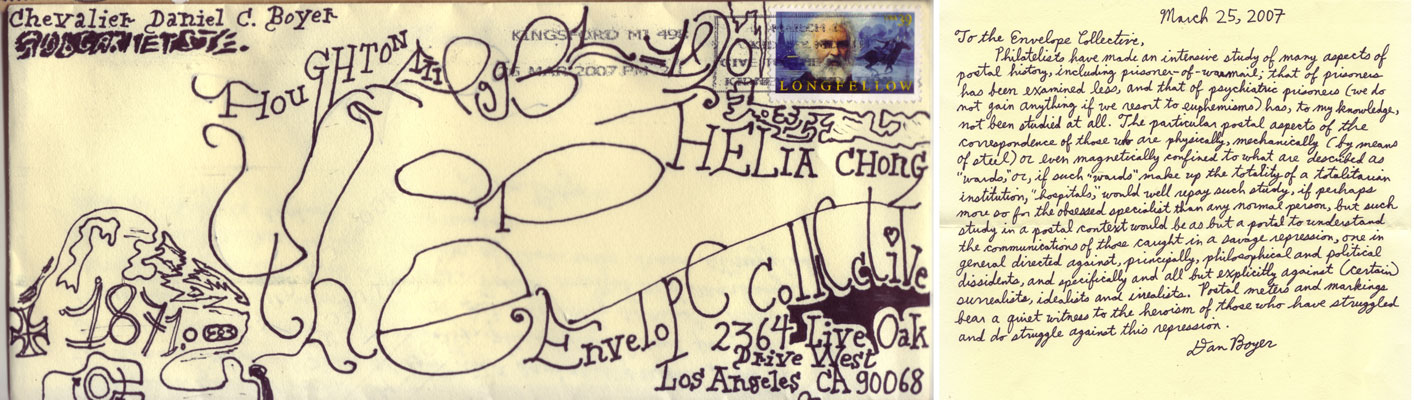 Chevalier Daniel C. Boyer
HOUGHTON MI
KINGSFORD MI 498
MAR 2007 PM
39
LONGFELLOW
HELIA CHONG
1871.
Envelope Collective
2364 Live Oak
Drive West
Los Angeles, CA 90068
March 25, 2007
To the Envelope Collective,
Philatelists have made an intensive study of many aspects of
postal history, including prisoner-of-war mail; that of prisoners
has been examined less, and that of psychiatric prisoners (we do
not gain anything if we resort to euphemisms) has, to my knowledge,
not been studied at all. The particular postal aspects of the
correspondence of those who are physically, mechanically (by means
of steel) or even magnetically confined to what are described as
"wards," or, if such "wards" make up the totality of a totalitarian
institution, "hospitals," would well repay such study, if perhaps
more so for the obsessed specialist than any normal person, but such
study in a postal context would be as but a portal to understand
the communications of those caught in a savage repression, one in
general directed against, principally, philosophical and political
dissidents, and specifically and all but explicitly against (certain)
surrealists, idealists and irrealists. Postal meters and markings
bear a quiet witness to the heroism of those who have struggled
and do struggle against this repression.
Dan Boyer